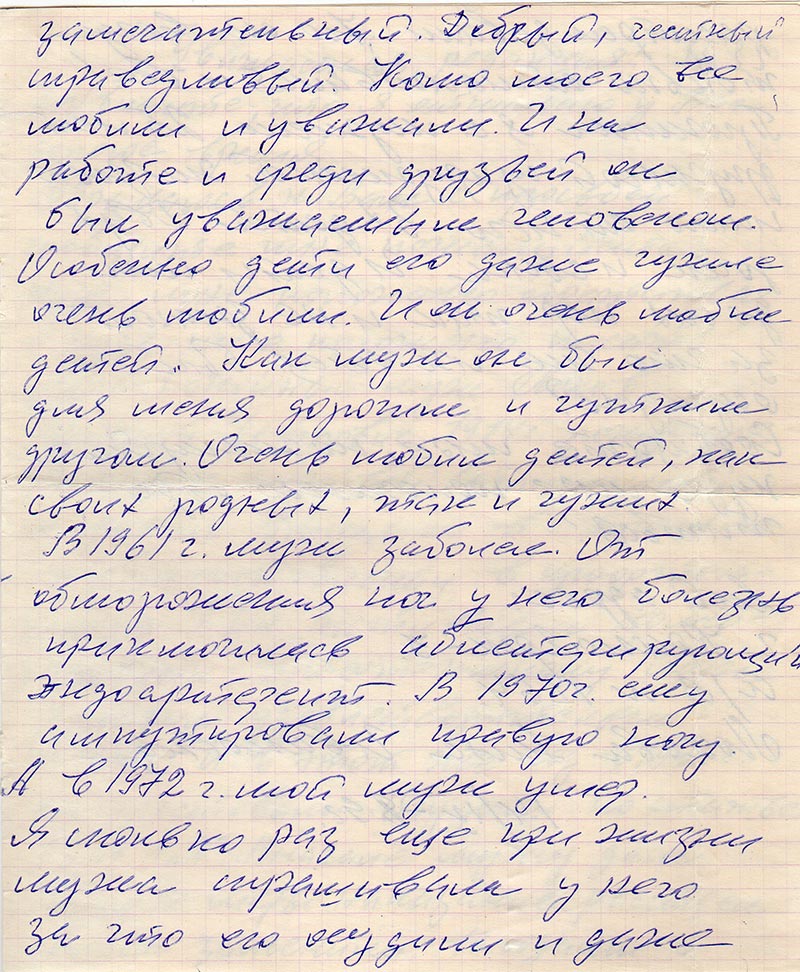 замечательный. Добрый, честный
справедливый. Колю моего все
любили и уважали. И на
работе и среди друзьей он
был уважаемым человеком.
Особенно дети его даже чужие
очень любили. И он очень любил
детей. Как муж он был
для меня дорогим и чутким
другом. Очень любил детей, как
своих родных, так и чужих.
В 1961 г. муж заболел. От
обморожения ног у него болезнь
приключилась облитерирующий
эндоартериит. В 1970г. ему
ампутировали правую ногу.
А в 1972 г. мой муж умер.
Я только раз еще при жизни
мужа спрашивала у него
за что его осудили и даже